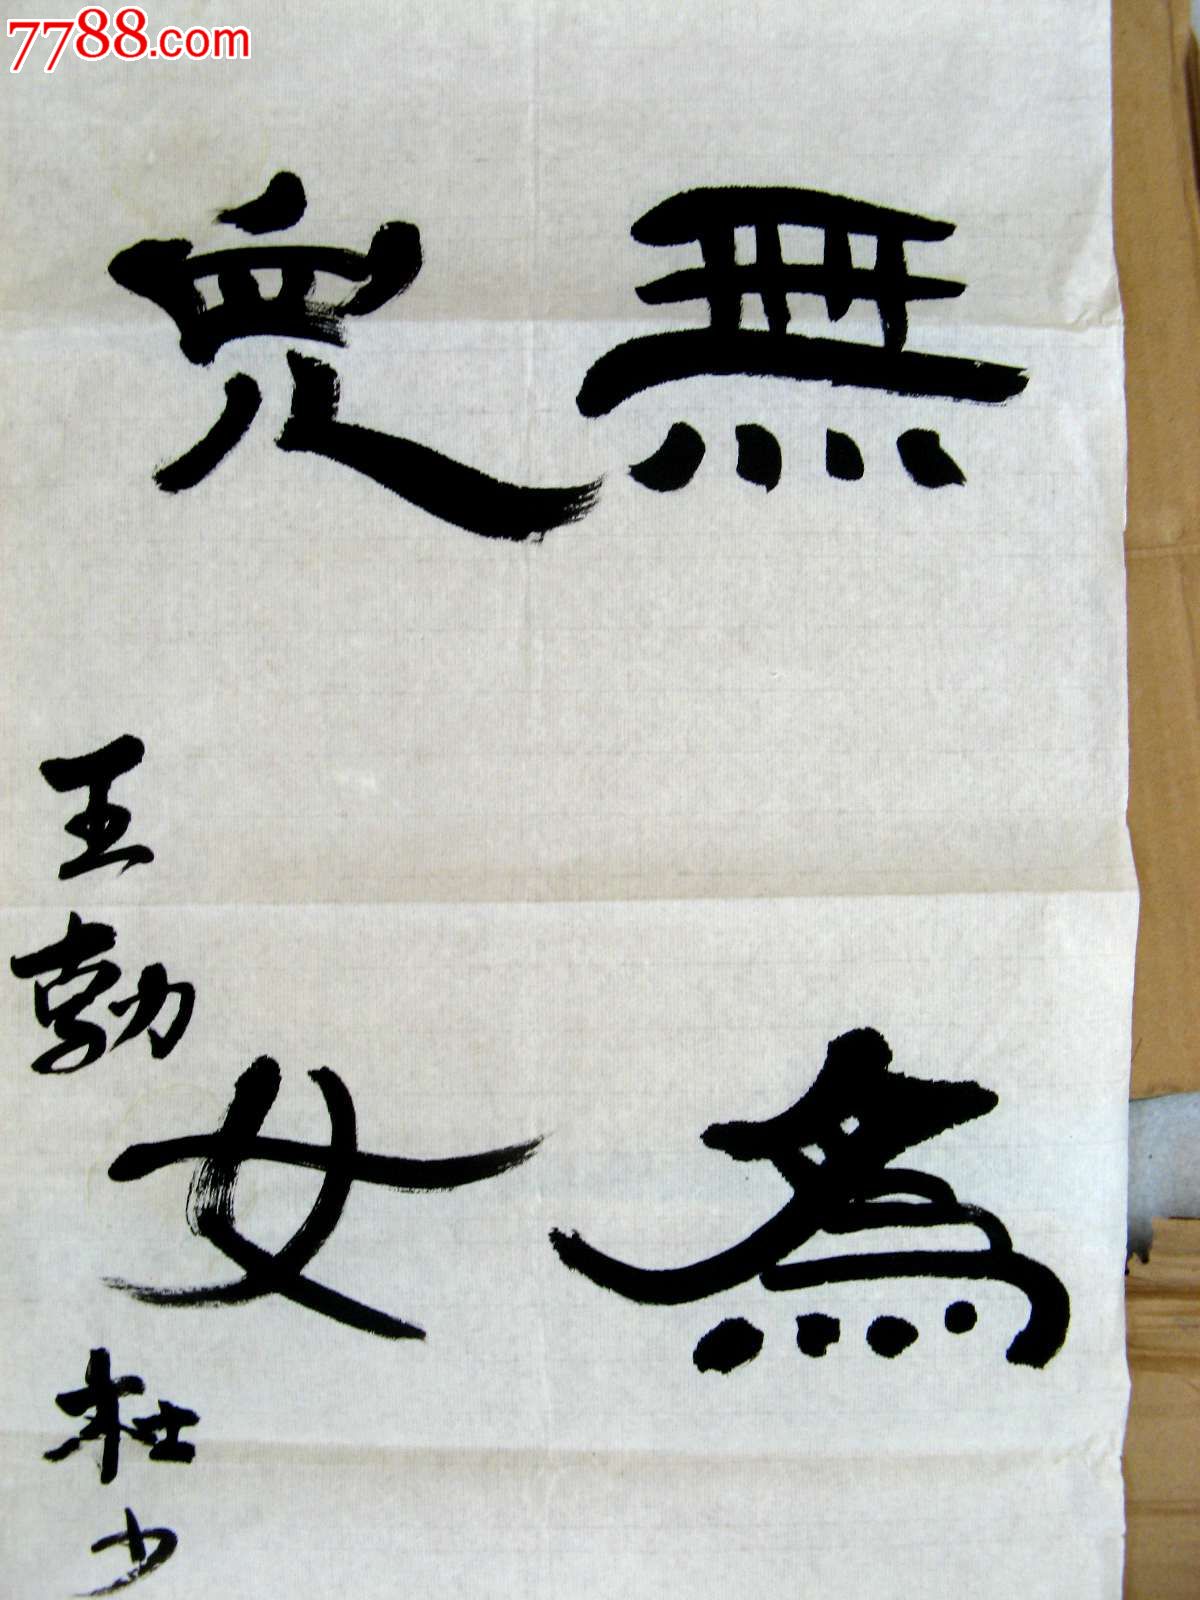 7788.com
無為
兒女
王勃杜少